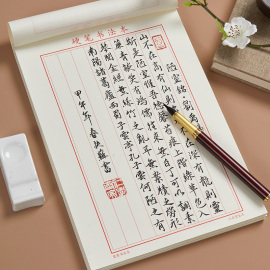 硬笔书法本
陋室銘 劉禹錫
山不在高有仙則名水不在深有龍則靈
斯是陋室惟吾德馨苔痕上階綠草色入
簾青談笑有鴻儒往來無白丁可以調素
琴閱金經無絲竹之亂耳無案牘之勞形
南陽諸葛廬西蜀子雲亭孔子云何陋之有
甲午年 春 書